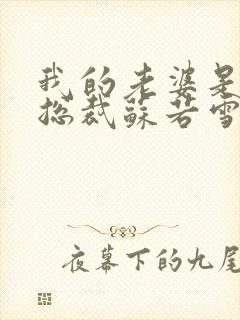 我的老婆是
总裁苏若雪
夜幕下的九尾